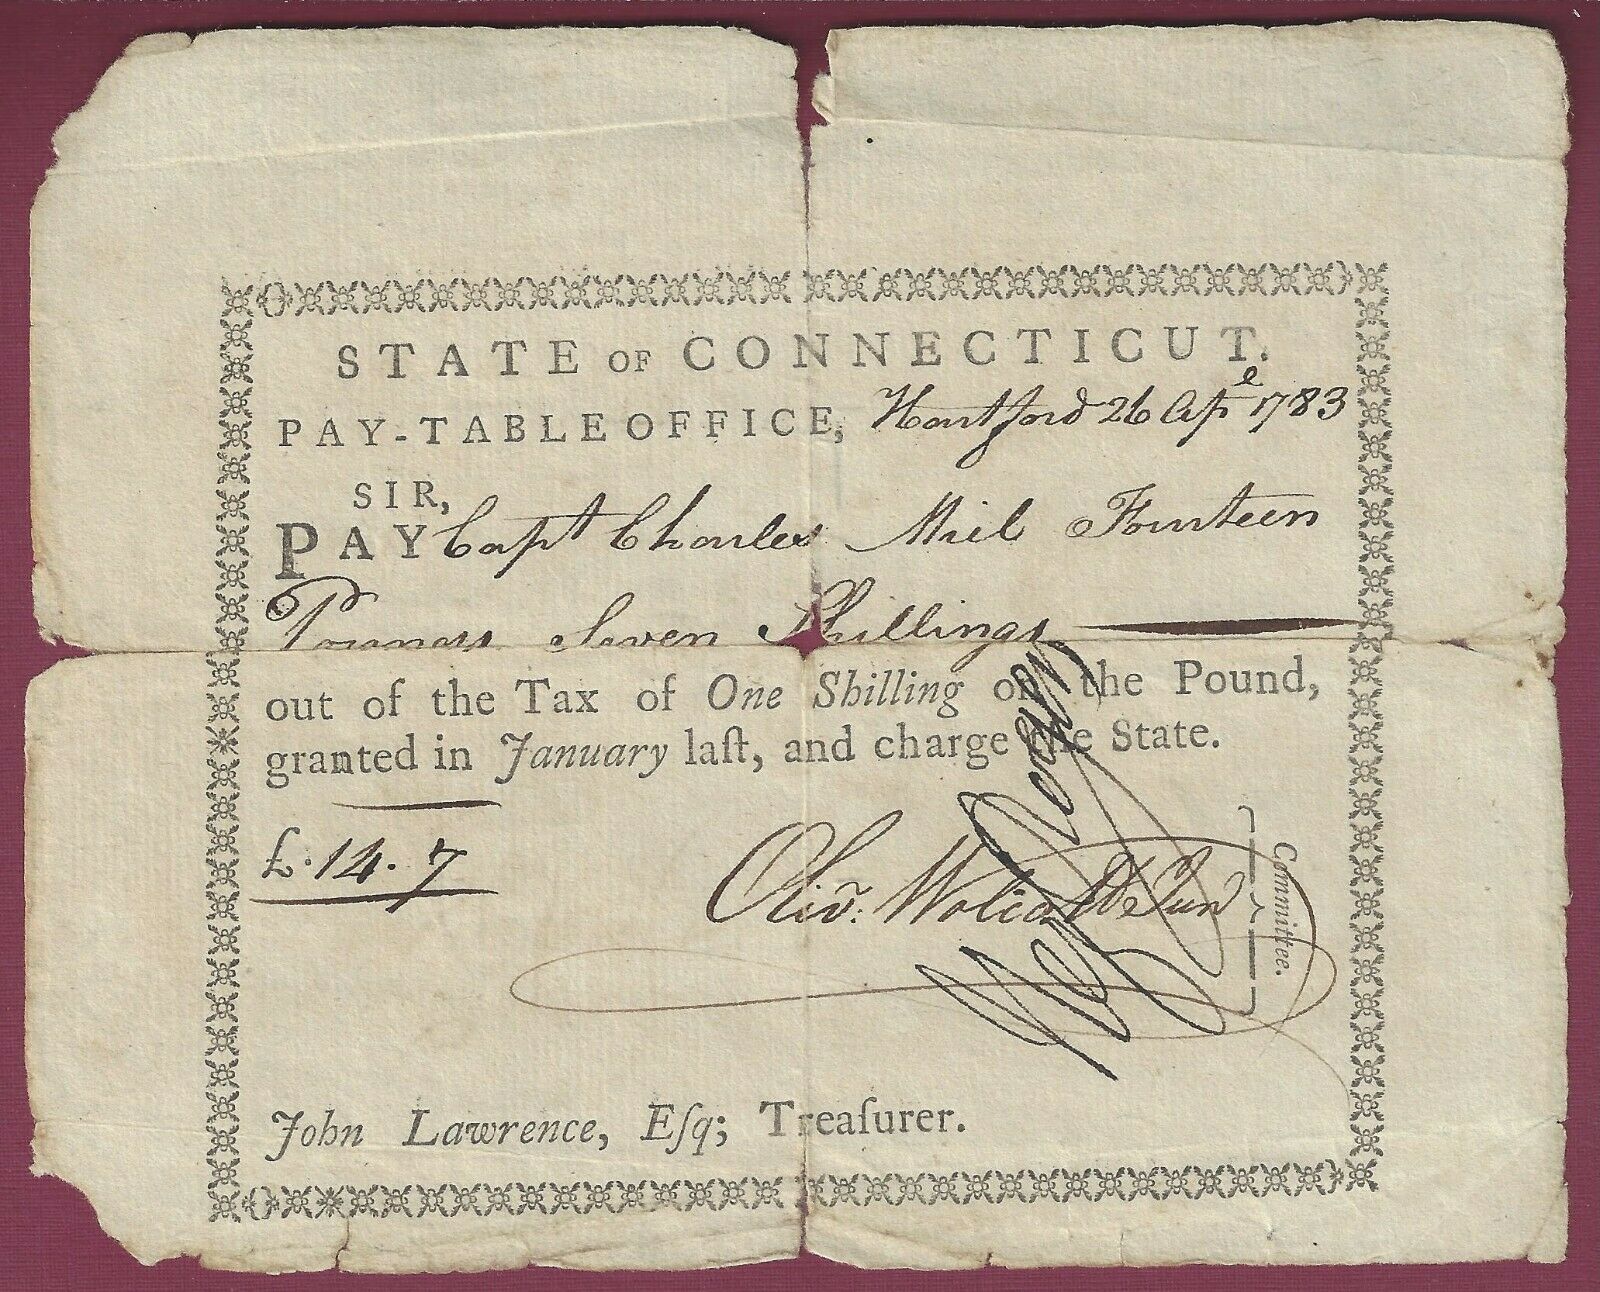 STATE OF CONNECTICUT.
PAY-TABLE OFFICE, Hartford 26 Apl 1783
SIR,
PAY Capt Charles Miel Fourteen
Pounds Seven Shillings
out of the Tax of One Shilling on the Pound,
granted in January laſt, and charge the State.
£. 14. 7
Olivr. Wolcott Jun
Committee.
John Lawrence, Eſq; Treaſurer.